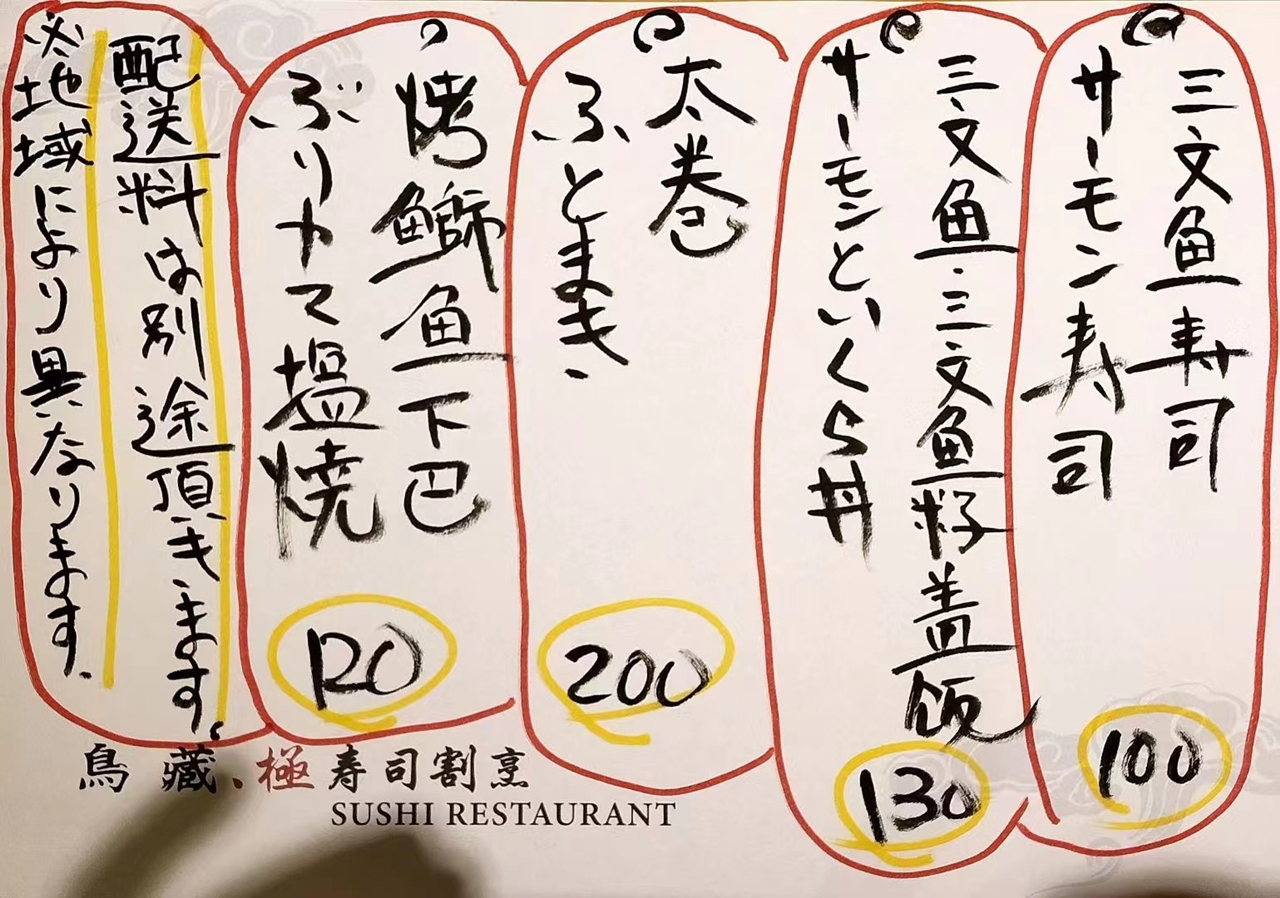 三文魚寿司
サーモン寿司
100
三文魚・三文魚籽盖饭
サーモンといくら丼
130
太巻
ふとまき
200
烤鰤魚下巴
ぶりカマ塩焼
120
配送料は別途頂きます。
※地域により異なります。
鳥藏.極寿司割烹
SUSHI RESTAURANT